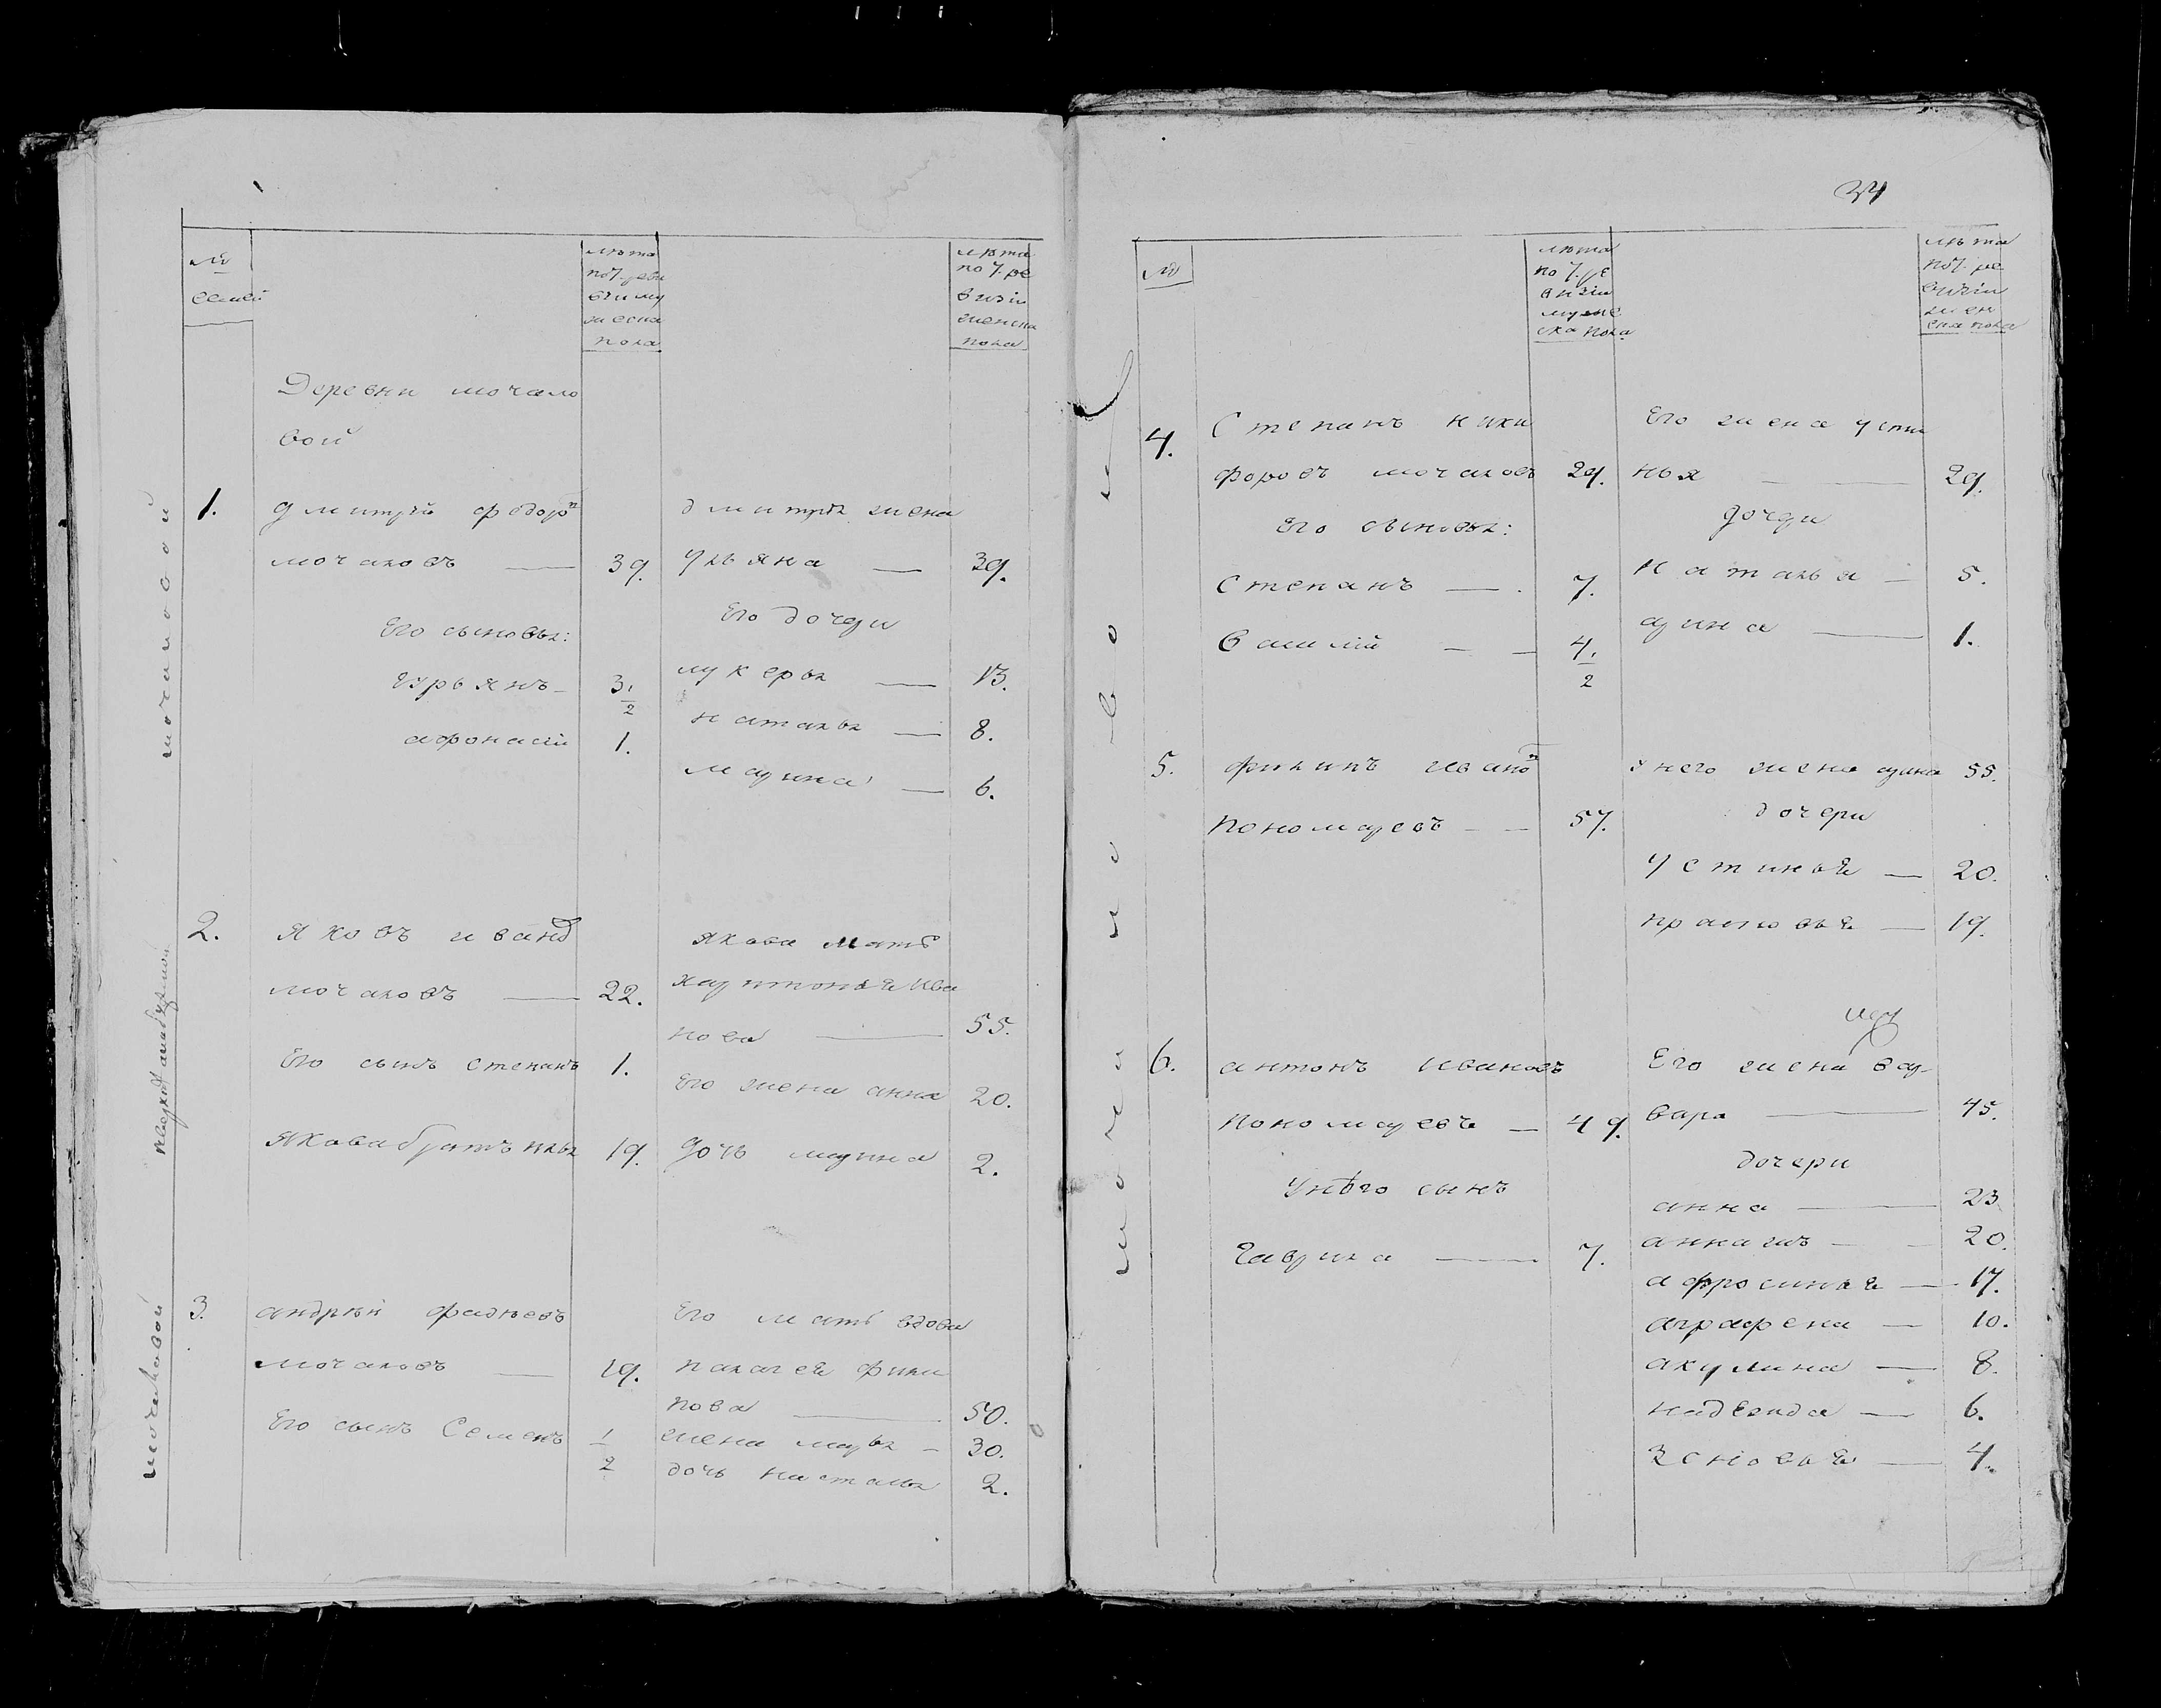 №
семей
лѣта
по 7. реви
зіи му
жеска
пола
лѣта
по 7. ре
визіи
женска
пола
Деревни мочало
вой
1. дмитрій федоро
мочаловъ — 39. дмитрія жена
ульяна — 39.
Его сыновья: Его дочери
гурьянъ — 3 1/2 лукерья — 13.
афонасій 1. наталья — 8.
марина — 6.
2. Яковъ ивано Якова мать
мочаловъ — 22. харитонья ива
нова — 55.
Его сынъ степанъ 1. Его жена анна 20.
Якова братъ илья 19. дочь марина 2.
3. андрѣй фадѣевъ Его мать вдова
мочаловъ — 19. палагея фили
пова — 50.
Его сынъ Семенъ 1/2 жена марья — 30.
дочь наталья 2.
мочаловой
мочаловой
34
№
лѣта
по 7. ре
визіи
муже
ска пола
лѣта
по 7. ре
визіи
жен
ска пола
4. Степанъ ники Его жена усти
форовъ мочаловъ 29. нья — 29.
Его сыновья: дочери
Степанъ — 7. наталья — 5.
Василій — 4 1/2 арина — 1.
5. филипъ ивано у него жена арина 55.
пономаревъ — 57. дочери
устинья — 20.
прасковья — 19.
6. антонъ ивановъ Его жена вар-
пономаревъ — 49. вара — 45.
у него сынъ дочери
гаврила — 7. анна — 23
анна — 20.
афросинья — 17.
аграфена — 10.
акулина — 8.
надежда — 6.
зеновья — 4.